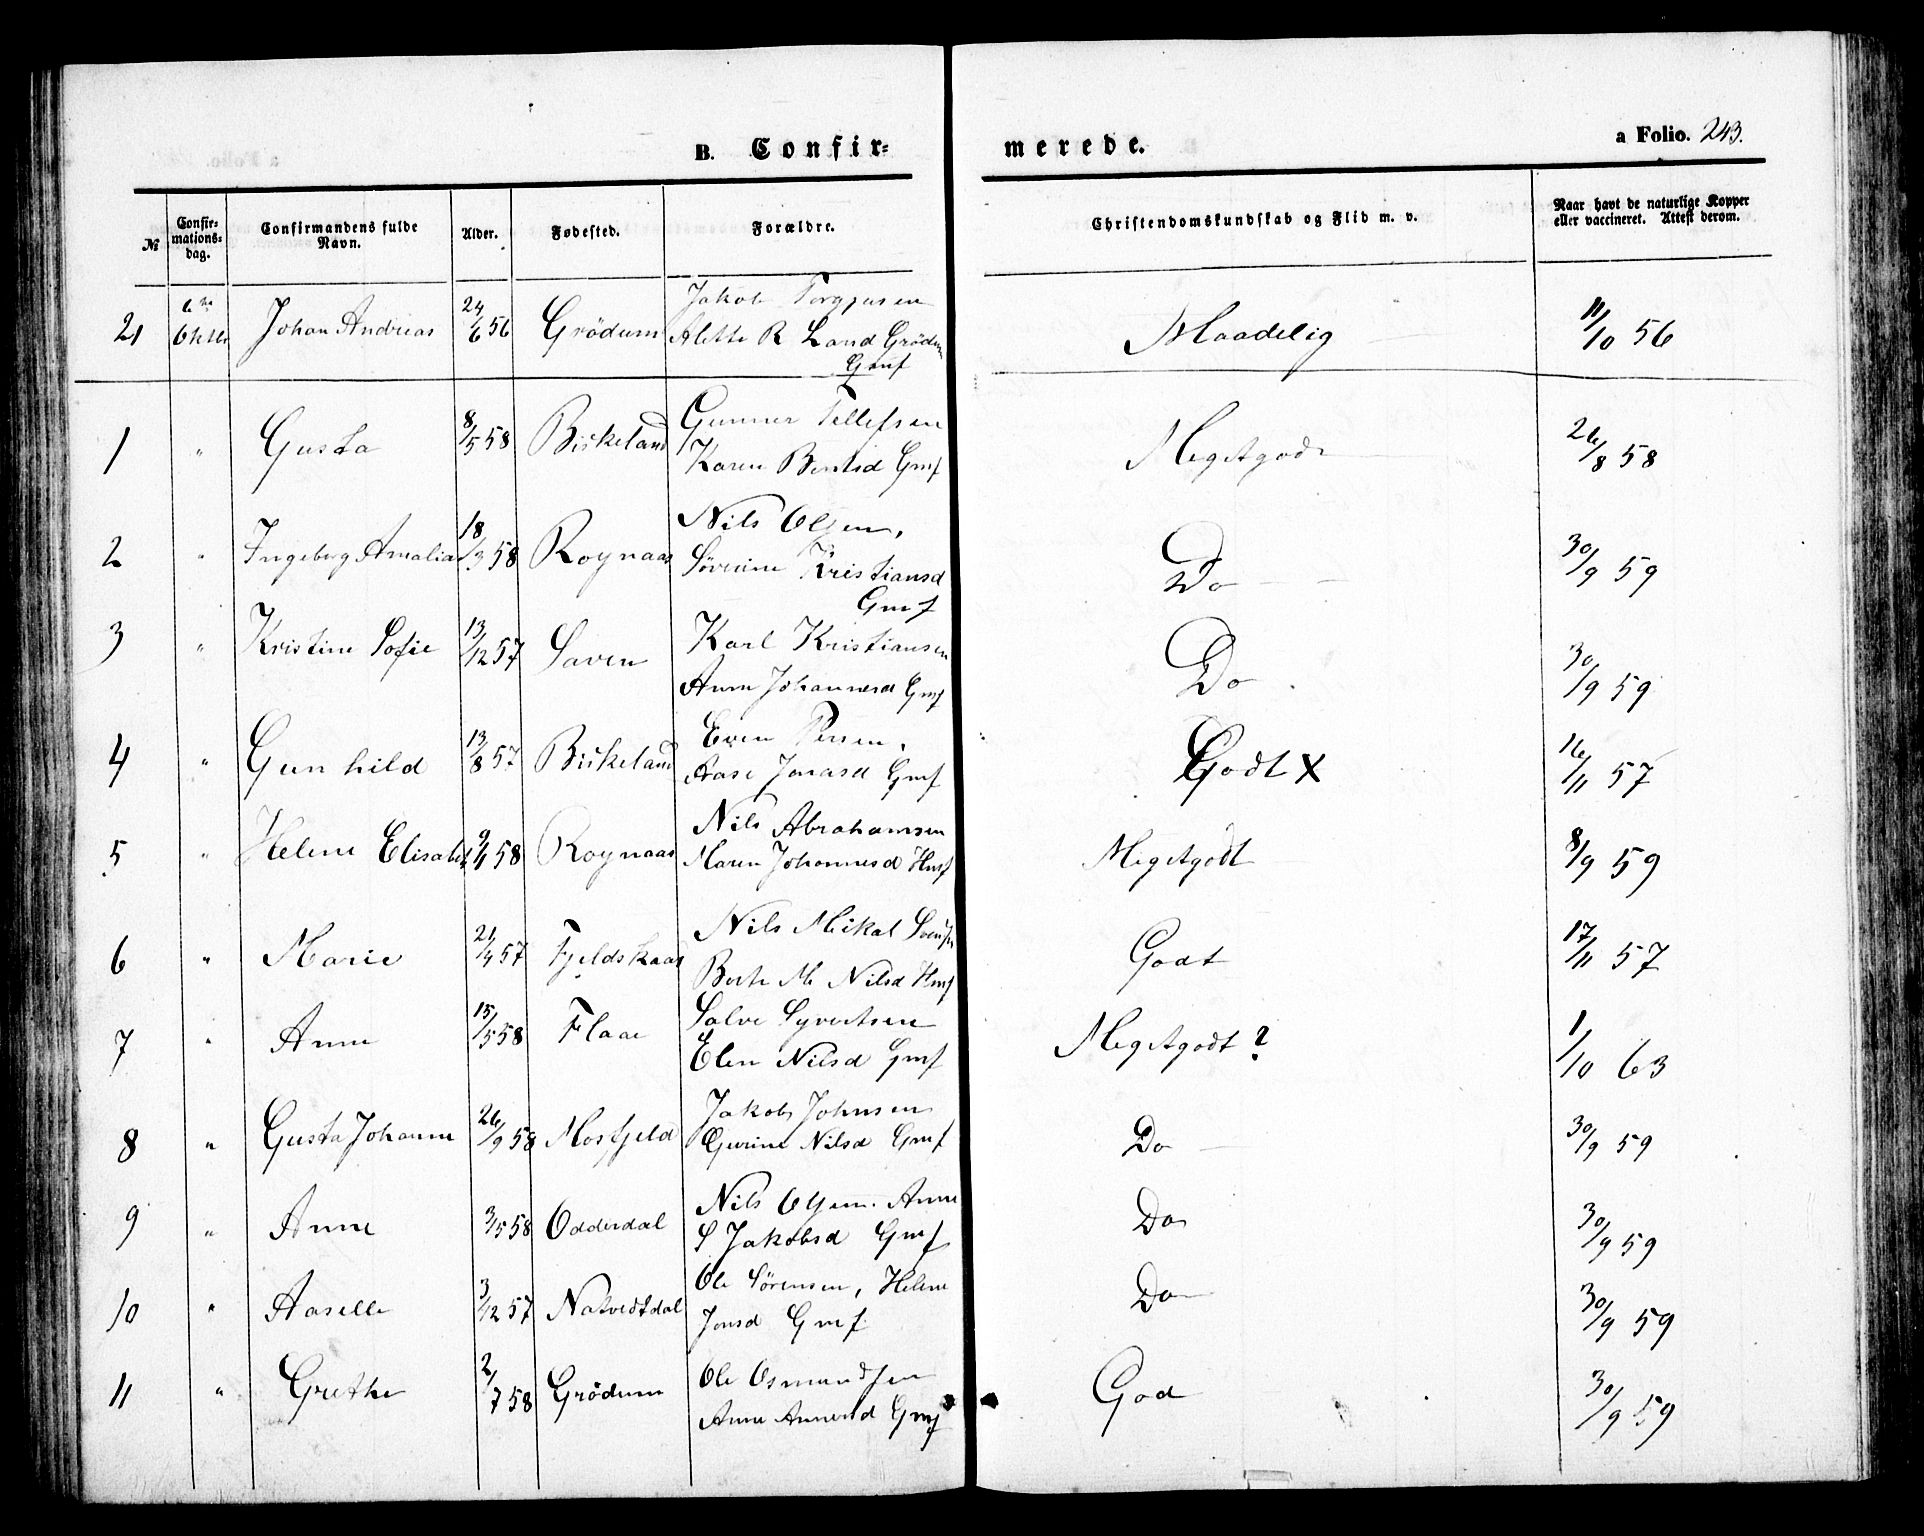 B. Confir=
merede.
a Folio. 243.
№
Confir-
mations-
dag.
Confirmandens fulde
Navn.
Alder.
Fødested.
Forældre.
Christendomskundskab og Flid m. v.
Naar havt de naturlige Kopper
eller vaccineret. Attest derom.
21 Johan Andreas 24/6 56 Grödum Jakob
Alette R Land Grödum
Gmf
Maadelig 11/10 56
1 " Gusta 8/5 58 Birkeland Gunner Tellefsen
Karen Bentsd Gmf
Megetgodt 26/8 58
2 " Ingeborg Amalia 18/3 58 Roynaas Nils Olsen,
Sørine Kristiansd
Gmf
Do 30/9 59
3 " Kristine Sofie 13/12 57 Saven Karl Kristiansen
Anne Johannesd Gmf
Do 30/9 59
4 " Gunhild 13/8 57 Birkeland Even Persen,
Aase Jonasd Gmf
Godt x 16/11 57
5 " Helene Elisabet 9/4 58 Roynaas Nils Abrahamsen
Maren Johannesd Hmf
Megetgodt 8/9 59
6 " Marie 21/4 57 Fjeldskaar Nils Mikal Svensen
Berte M Nilsd Hmf
Godt 17/11 57
7 " Anne 15/5 58 Flaae Salve Syvertsen
Elen Nilsd Gmf
Megetgodt? 1/10 63
8 " Gusta Johanne 26/9 58 Mosfjeld Jakob Johnsen
Gurine Nilsd Gmf
Do 30/9 59
9 " Anne 3/5 58 Odderdal Nils Olsen. Anne
S Jakobsd Gmf
Do 30/9 59
10 " Aaselle 3/12 57 Natvedtdal Ole Sørensen, Helene
Jonsd Gmf
Do 30/9 59
11 " Grethe 2/7 58 Grödum Ole Osmundsen
Anne Gmf
God 30/9 59